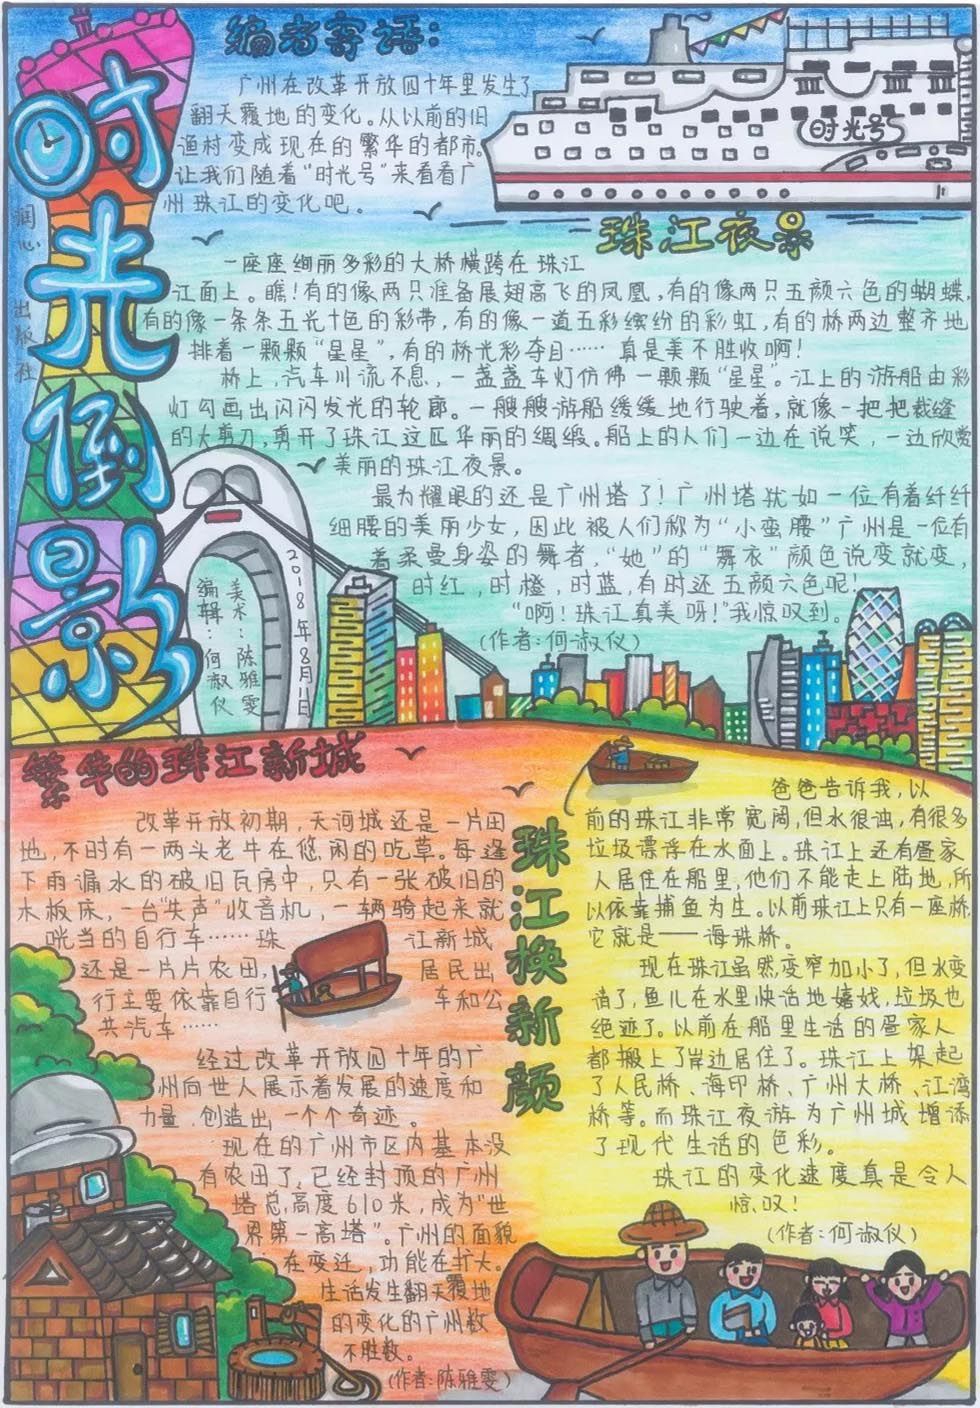 时光倒影
润心出版社
编者寄语：
广州在改革开放四十年里发生了
翻天覆地的变化。从以前的旧
渔村变成现在的繁华的都市。
让我们随着“时光号”来看看广
州珠江的变化吧。
时光号
珠江夜景
一座座绚丽多彩的大桥横跨在珠江
江面上。瞧！有的像两只准备展翅高飞的凤凰，有的像两只五颜六色的蝴蝶，
有的像一条条五光十色的彩带，有的像一道五彩缤纷的彩虹，有的桥两边整齐地
排着一颗颗“星星”，有的桥光彩夺目……真是美不胜收啊！
桥上，汽车川流不息，一盏盏车灯仿佛一颗颗“星星”。江上的游船由彩
灯勾画出闪闪发光的轮廓。一艘艘游船缓缓地行驶着，就像一把把裁缝
的大剪刀，剪开了珠江这匹华丽的绸缎。船上的人们一边在说笑，一边欣赏
美丽的珠江夜景。
最为耀眼的还是广州塔了！广州塔犹如一位有着纤纤
细腰的美丽少女，因此被人们称为“小蛮腰”广州是一位有
着柔曼身姿的舞者，“她”的“舞衣”颜色说变就变，
时红，时橙，时蓝，有时还五颜六色呢！
“啊！珠江真美呀！”我惊叹到。
（作者：何淑仪）
2018年8月1日
美术：陈雅雯
编辑：何淑仪
繁华的珠江新城
改革开放初期，天河城还是一片田
地，不时有一两头老牛在悠闲的吃草。每逢
下雨漏水的破旧瓦房中，只有一张破旧的
木板床，一台“失声”收音机，一辆骑起来就
咣当的自行车……珠江新城
还是一片片农田，居民出
行主要依靠自行车和公
共汽车……
经过改革开放四十年的广
州向世人展示着发展的速度和
力量，创造出一个个奇迹。
现在的广州市区内基本没
有农田了，已经封顶的广州
塔总高度610米，成为“世
界第一高塔”。广州的面貌
在变迁，功能在扩大。
生活发生翻天覆地
的变化的广州数
不胜数。
（作者：陈雅雯）
珠江换新颜
爸爸告诉我，以
前的珠江非常宽阔，但水很浊，有很多
垃圾漂浮在水面上。珠江上还有疍家
人居住在船里，他们不能走上陆地，所
以依靠捕鱼为生。以前珠江上只有一座桥，
它就是——海珠桥。
现在珠江虽然变窄加小了，但水变
清了，鱼儿在水里快活地嬉戏，垃圾也
绝迹了。以前在船里生活的疍家人
都搬上了岸边居住了。珠江上架起
了人民桥、海印桥、广州大桥、江湾
桥等。而珠江夜游为广州城增添
了现代生活的色彩。
珠江的变化速度真是令人
惊叹！
（作者：何淑仪）